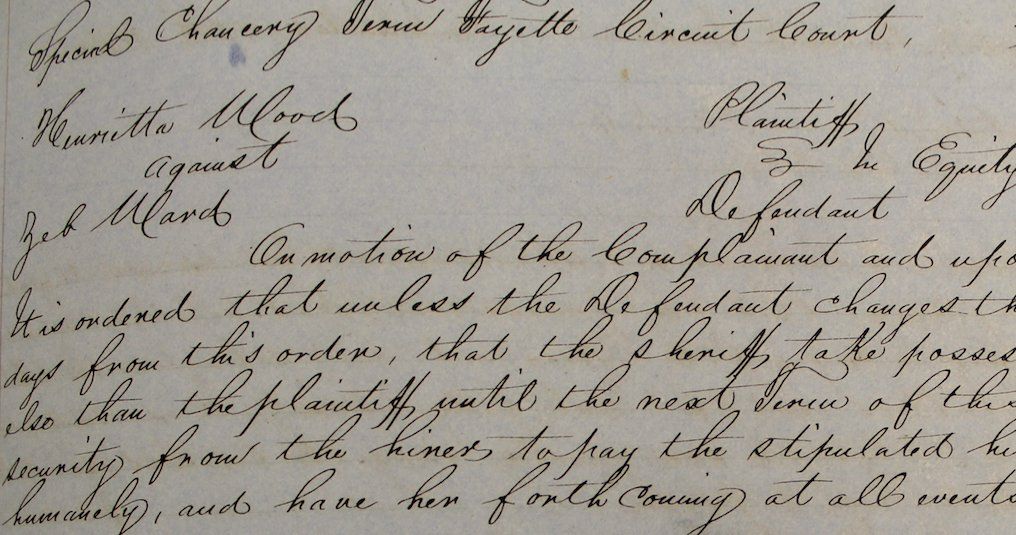 Special Chancery Term Fayette Circuit Court,
Henrietta Wood Plaintiff
against In Equity
Zeb Ward Defendant
On motion of the Complainant and upo
It is ordered that unless the Defendant changes th
days from this order, that the sheriff take posses
else than the plaintiff until the next Term of this
security from the hirer to pay the stipulated hi
humanely, and have her forth coming at all events